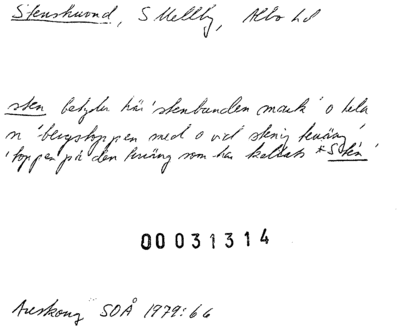 Stenskuvud, S Melby, Ale hd
sten betyder här 'stenbunden mark' o hela
n 'bergstoppen med o vid stenig terräng'
'toppen på den terräng som har kallats *Sten'
00031314
SOÅ 1979:66